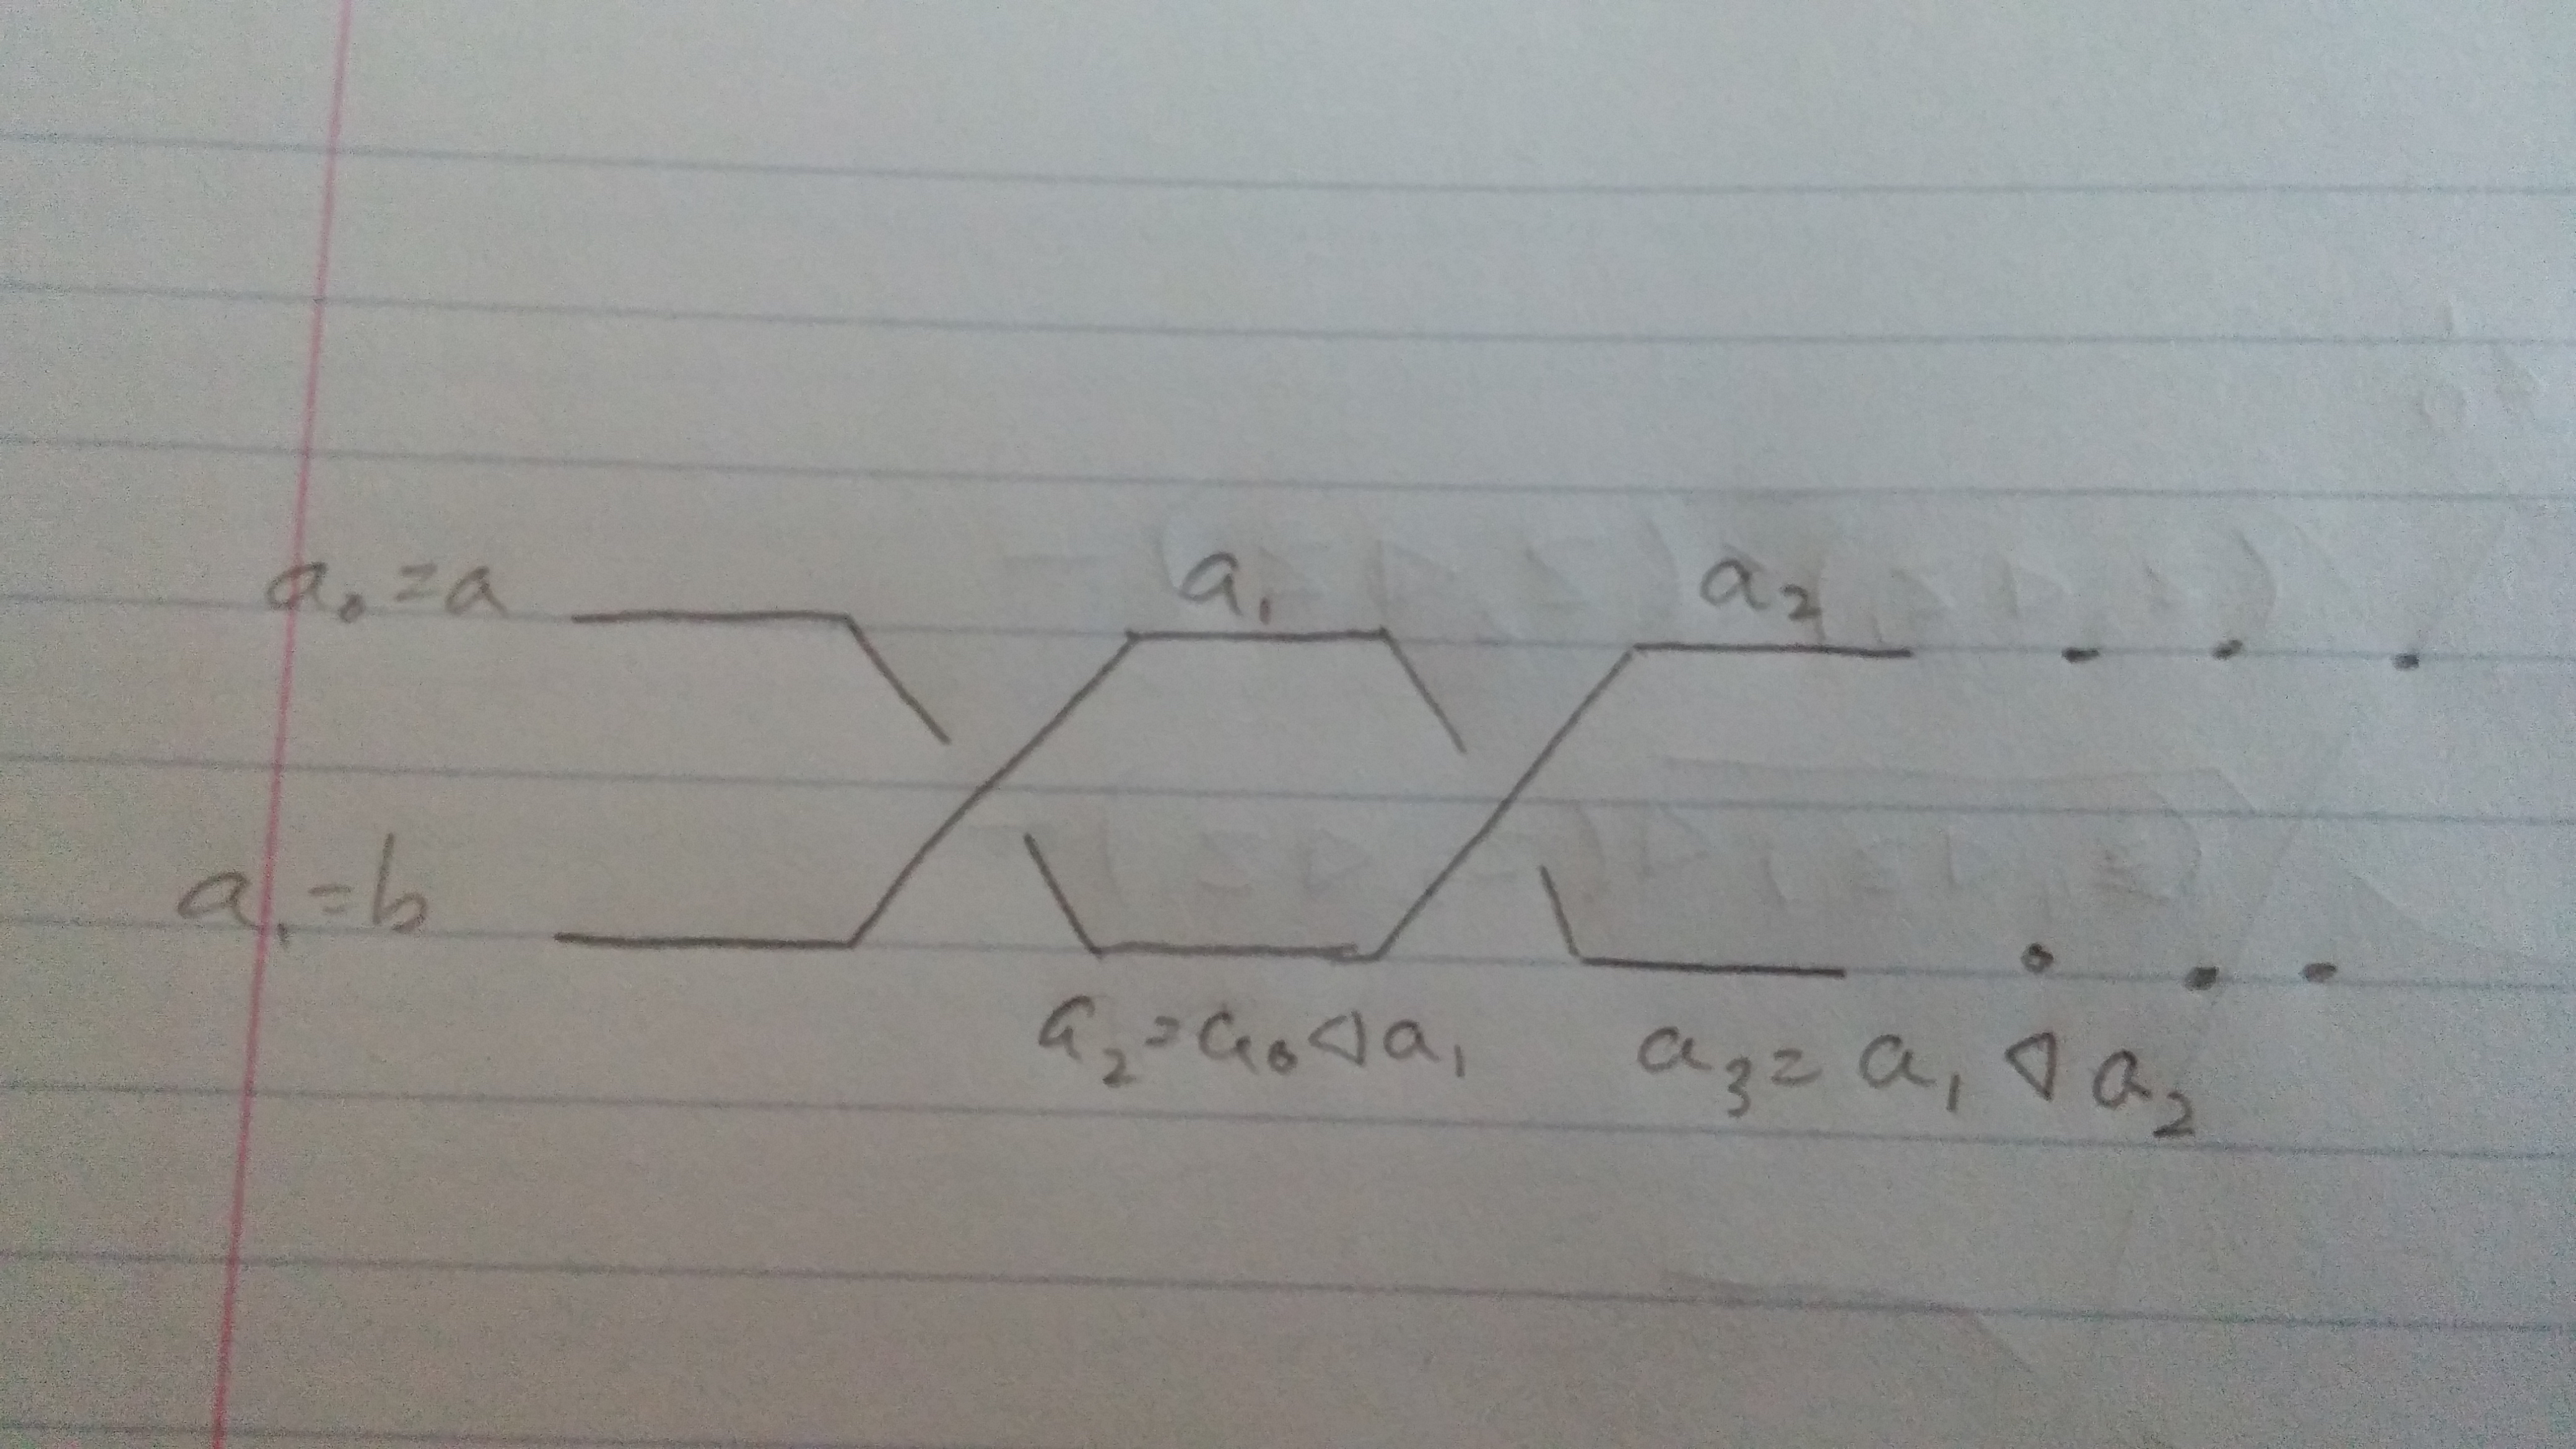 a₀ = a a₁ a₂ . . .
a₁ = b . . .
a₂ = a₀ ◁ a₁ a₃ = a₁ ◁ a₂